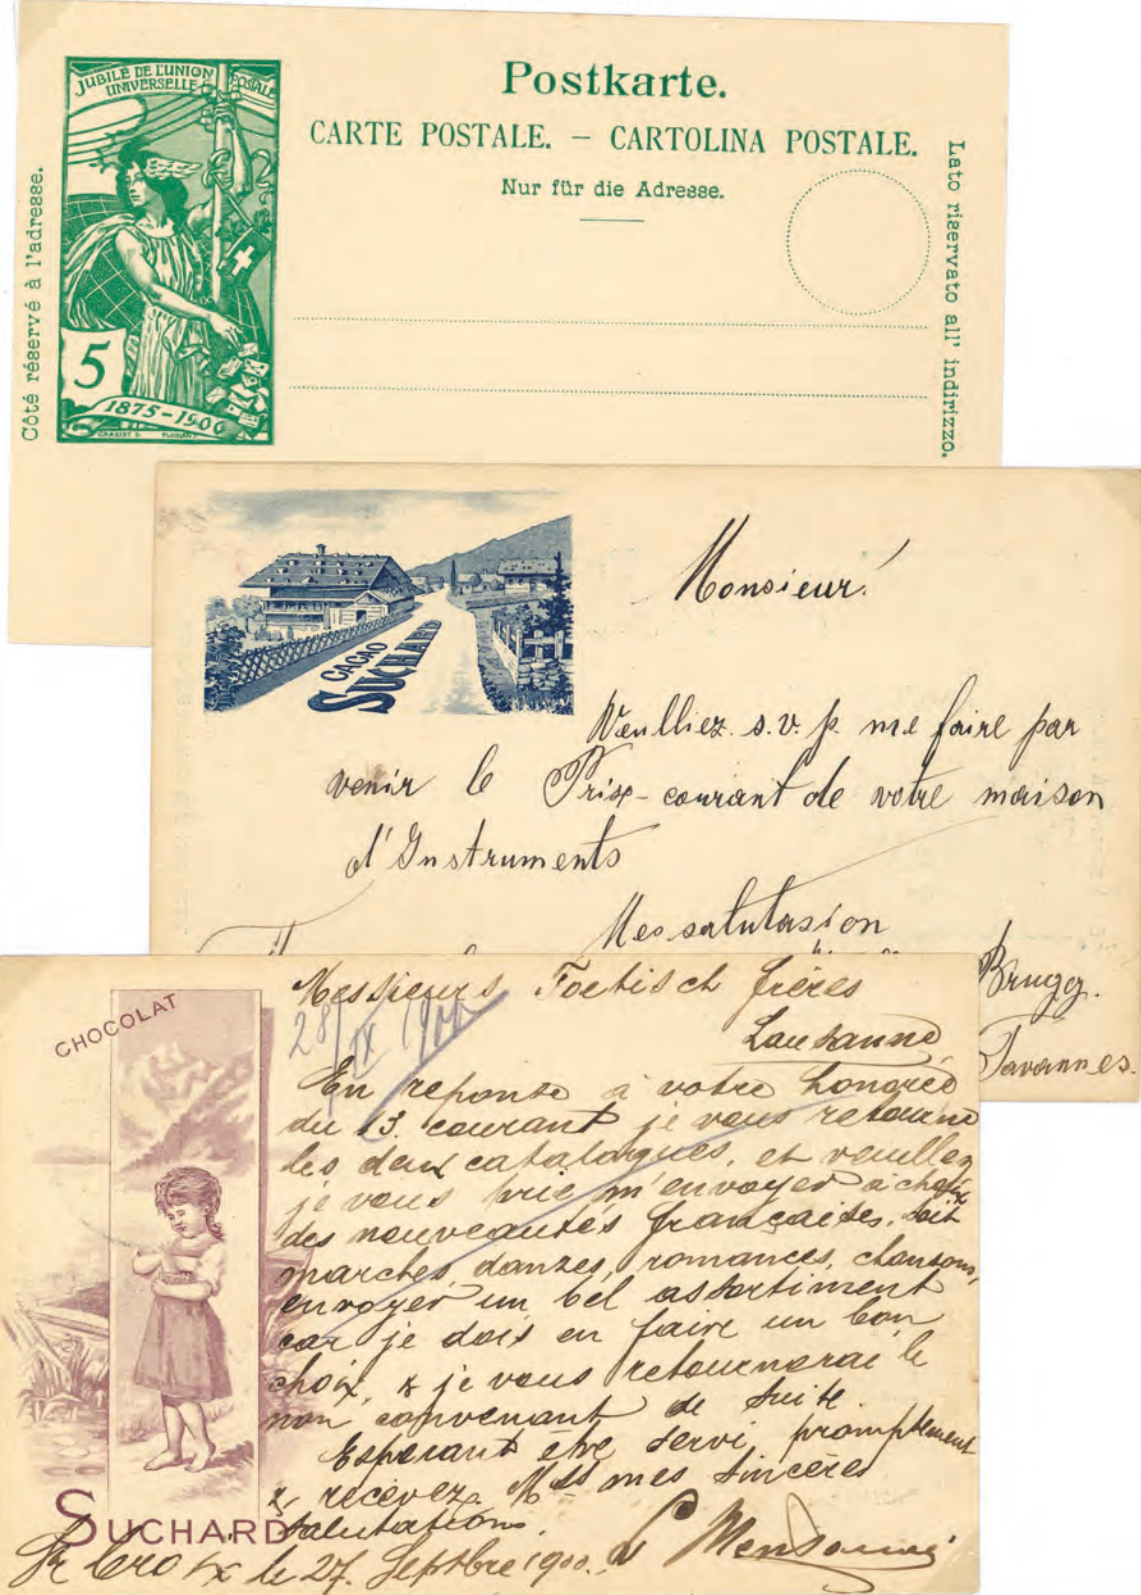 JUBILÉ DE L'UNION
UNIVERSELLE POSTALE
5
1875-1900
Côté réservé à l'adresse.
Postkarte.
CARTE POSTALE. – CARTOLINA POSTALE.
Nur für die Adresse.
Lato riservato all' indirizzo.
CACAO
SUCHARD
Monsieur!
Veulliez. s.v.p. me faire par
venir le Prix-courant de votre maison
d'Instruments
Mes salutasion
Brugg.
Tavannes.
CHOCOLAT
SUCHARD
Messieurs Foetisch frères
28/IX 1900
Lausanne
En reponse à votre honorée
du 13. courant je vous retourne
les deux catalogues, et veuillez
je vous prie m'envoyer à choix
des nouveautés françaises, soit
marches, danses, romances, chansons,
envoyer un bel assortiment
car je dois en faire un bon
choix, & je vous retournerai le
non convenant de suite.
Esperant être servi promptement
& recevez Mss mes sincères
salutations.
Ste Croix le 27. Septbre 1900.